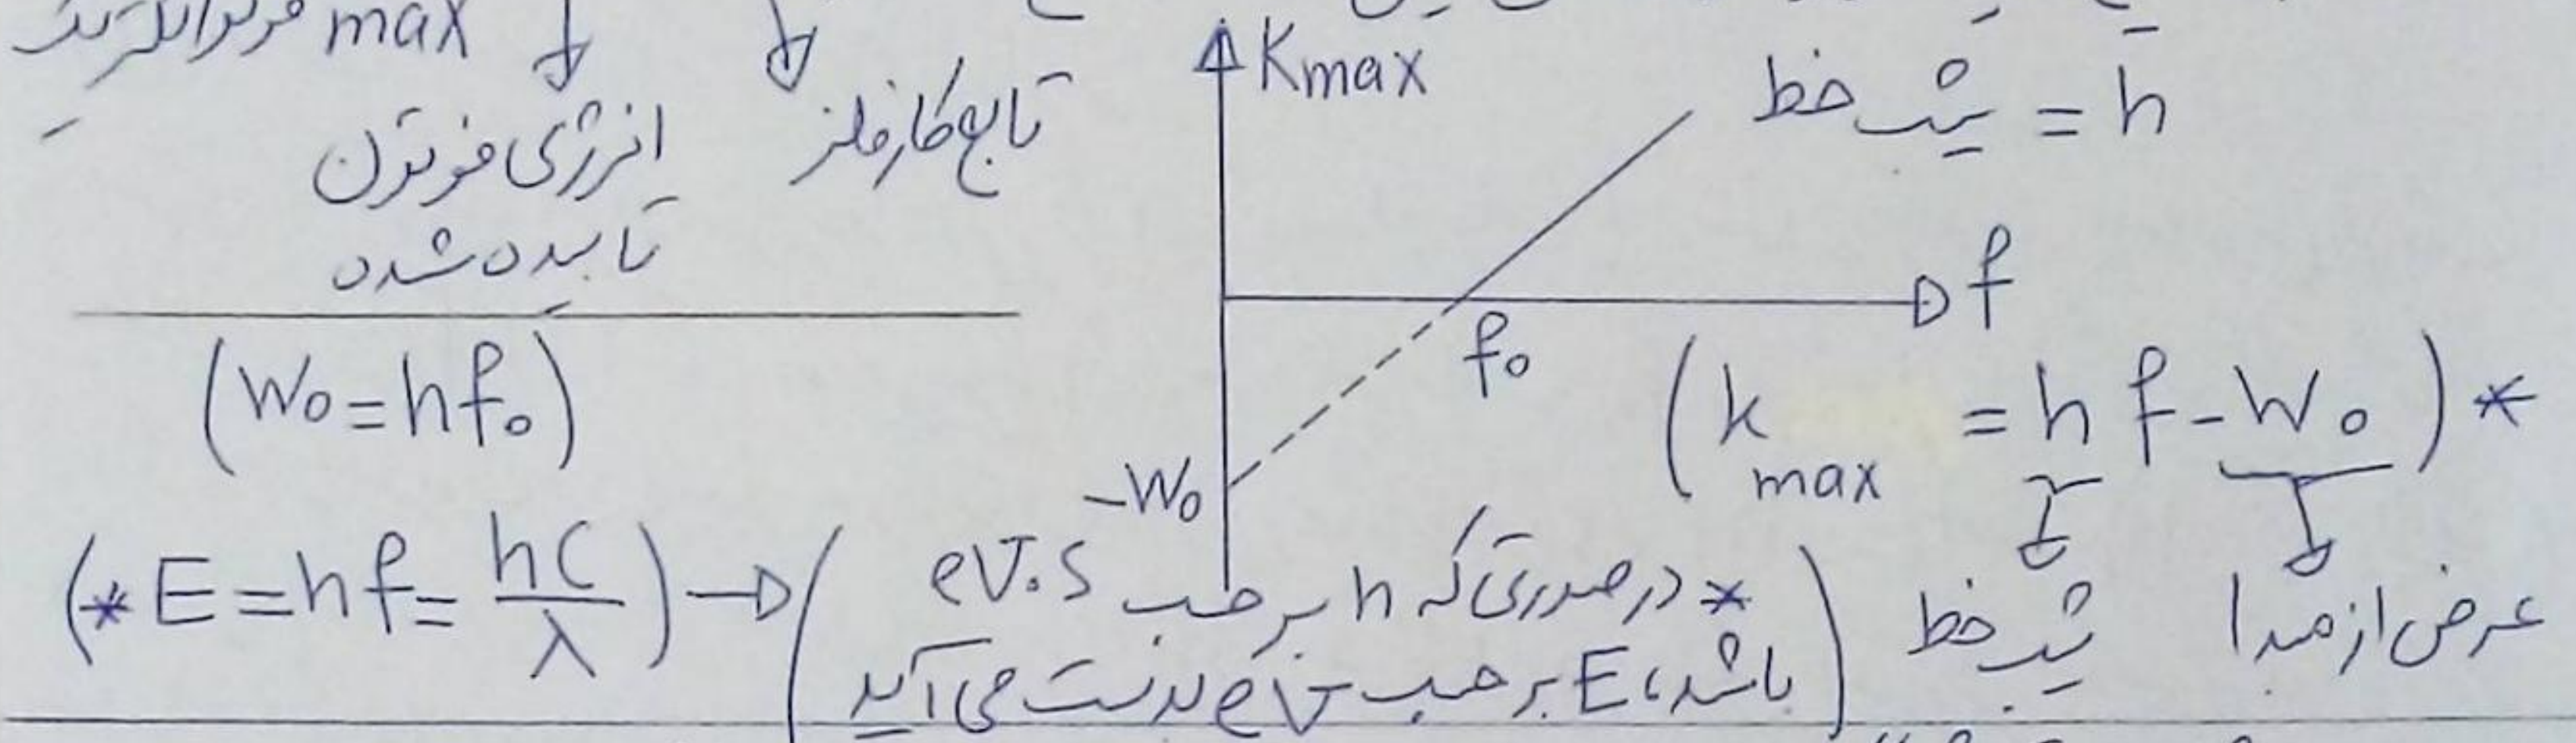 max فوتوالکتریک
انرژی فوتون
تابیده شده
تابع کار فلز
Kmax
شیب خط = h
f
f₀
-W₀
(W₀ = hf₀)
(k max = h f - W₀) *
شیب خط
عرض از مبدا
(* E = hf = hC / λ) → (* در صورتی که h برحسب eV.s
باشد، E برحسب eV بدست می آید)